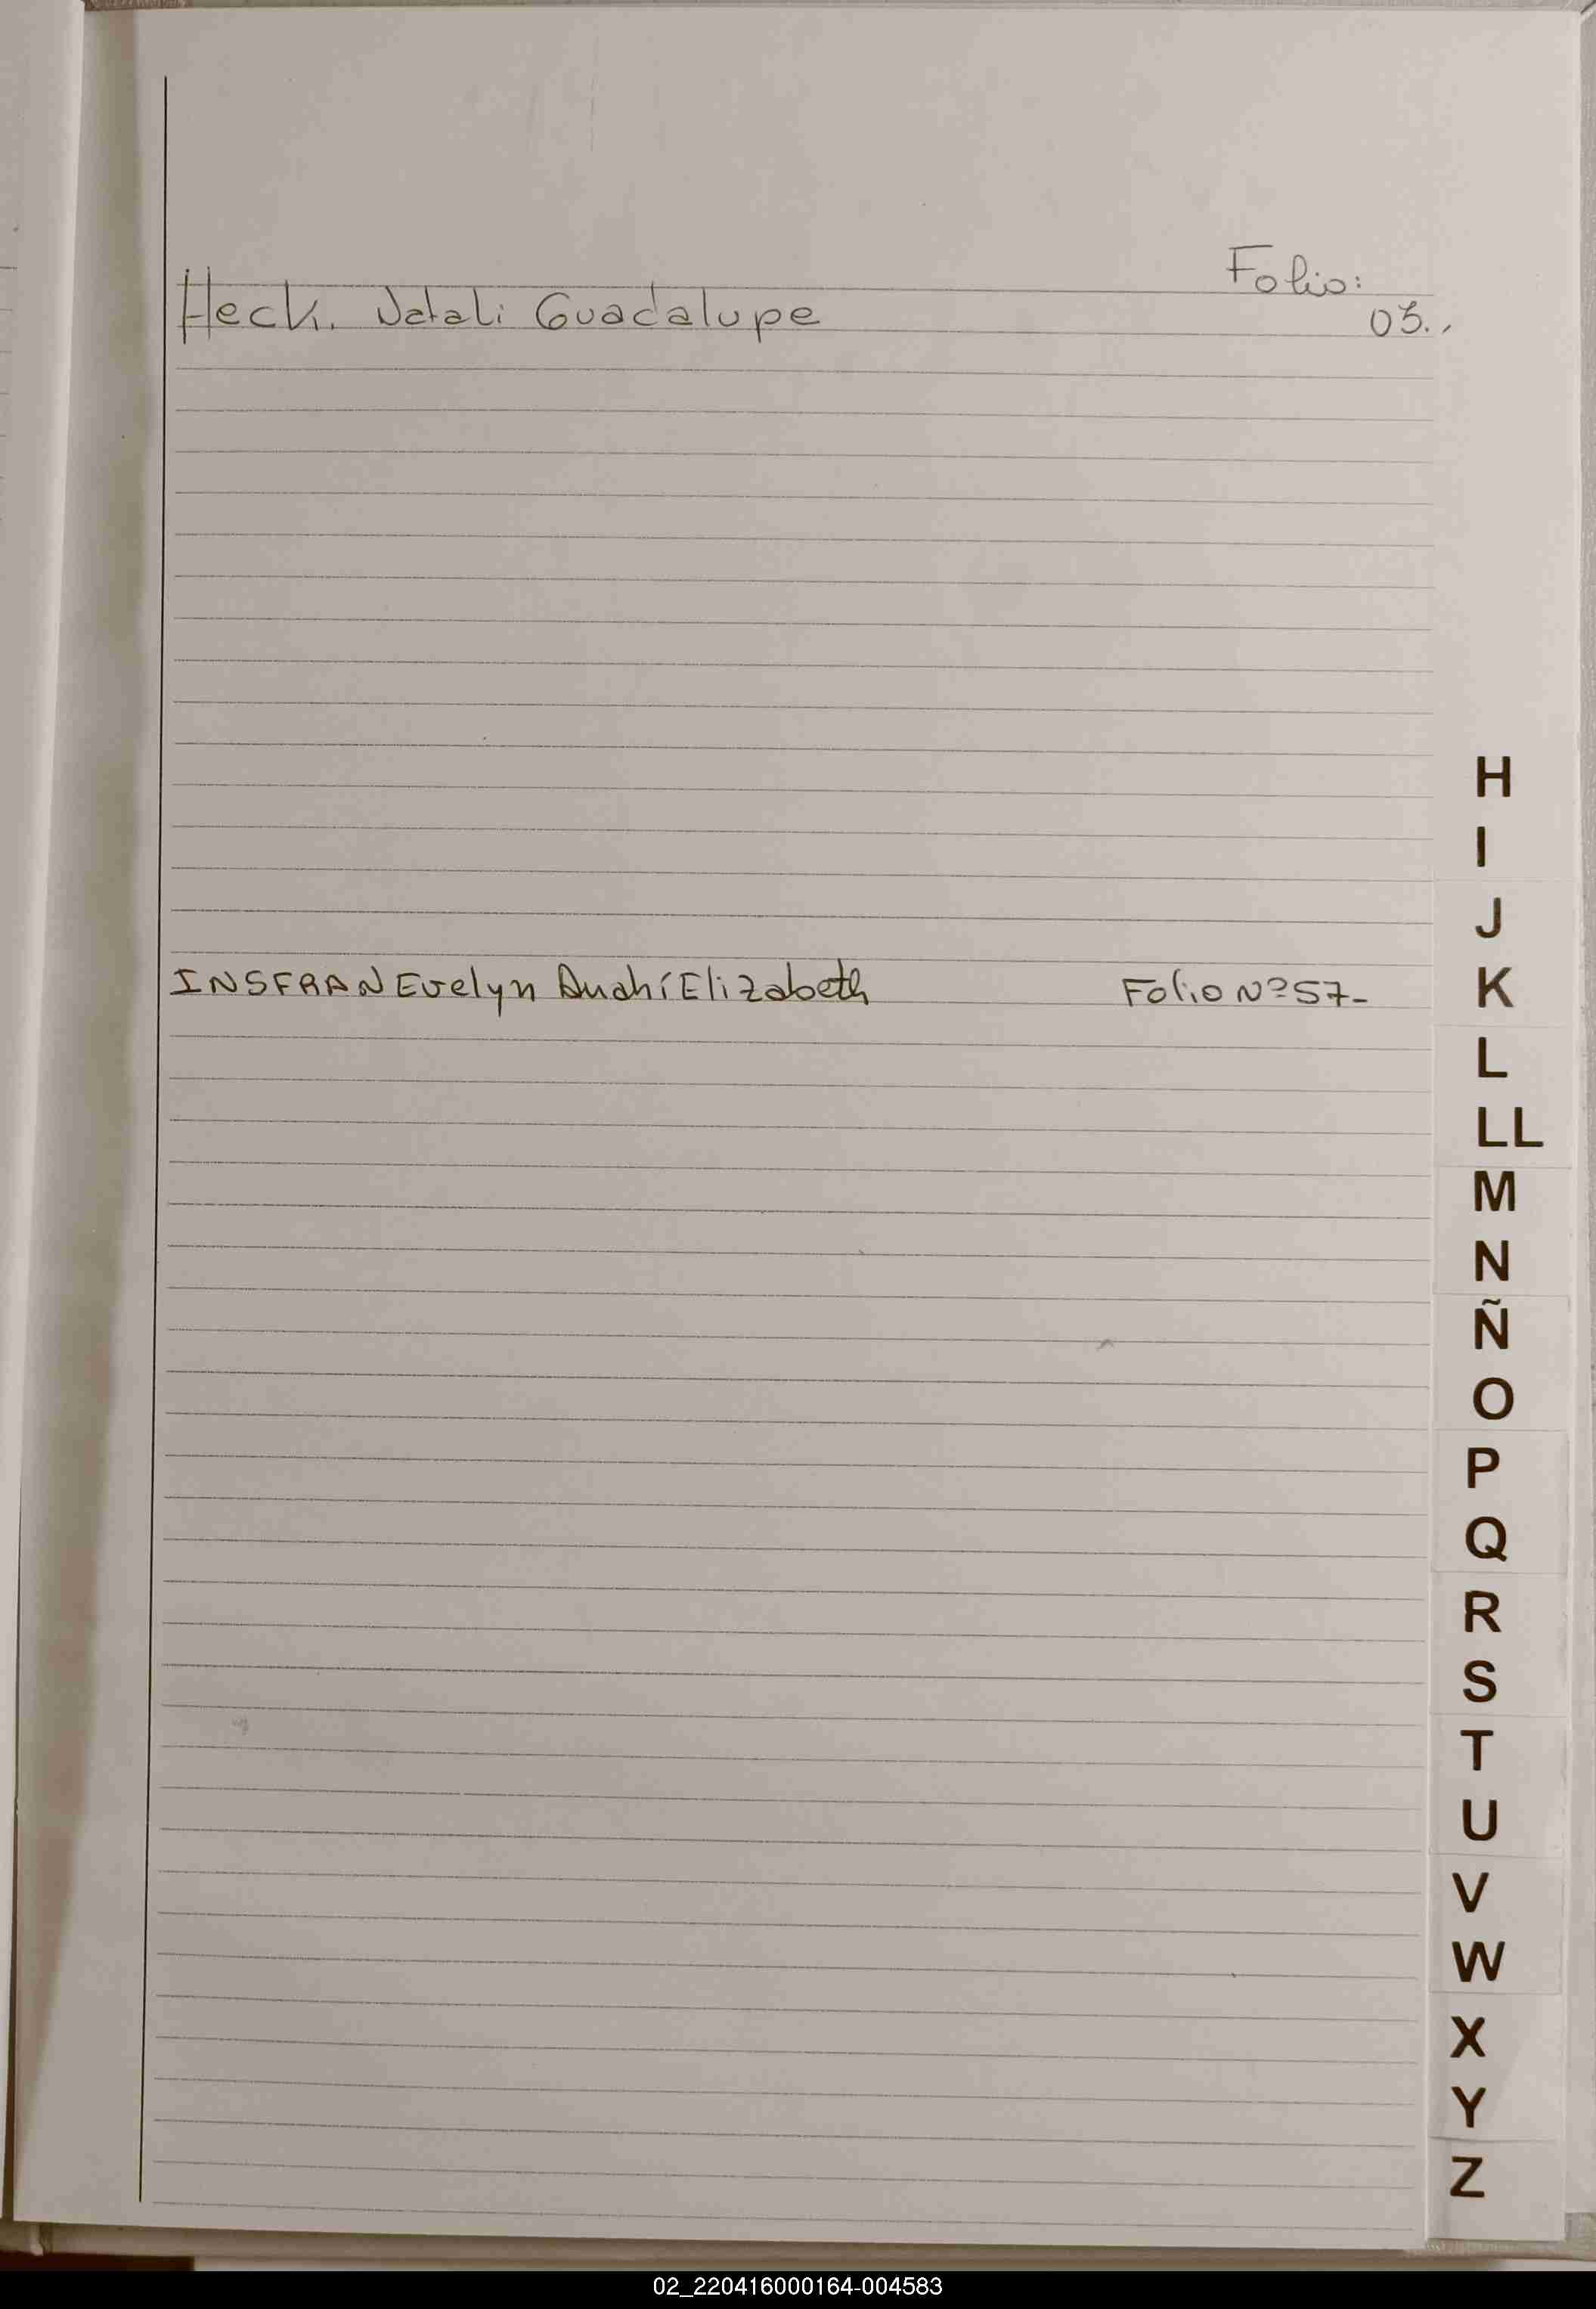 Folio:
Heck. Natali Guadalupe 03..
H
I
J
INSFRAN Evelyn Anahí Elizabeth Folio Nº 57-
K
L
LL
M
N
Ñ
O
P
Q
R
S
T
U
V
W
X
Y
Z
02_220416000164-004583